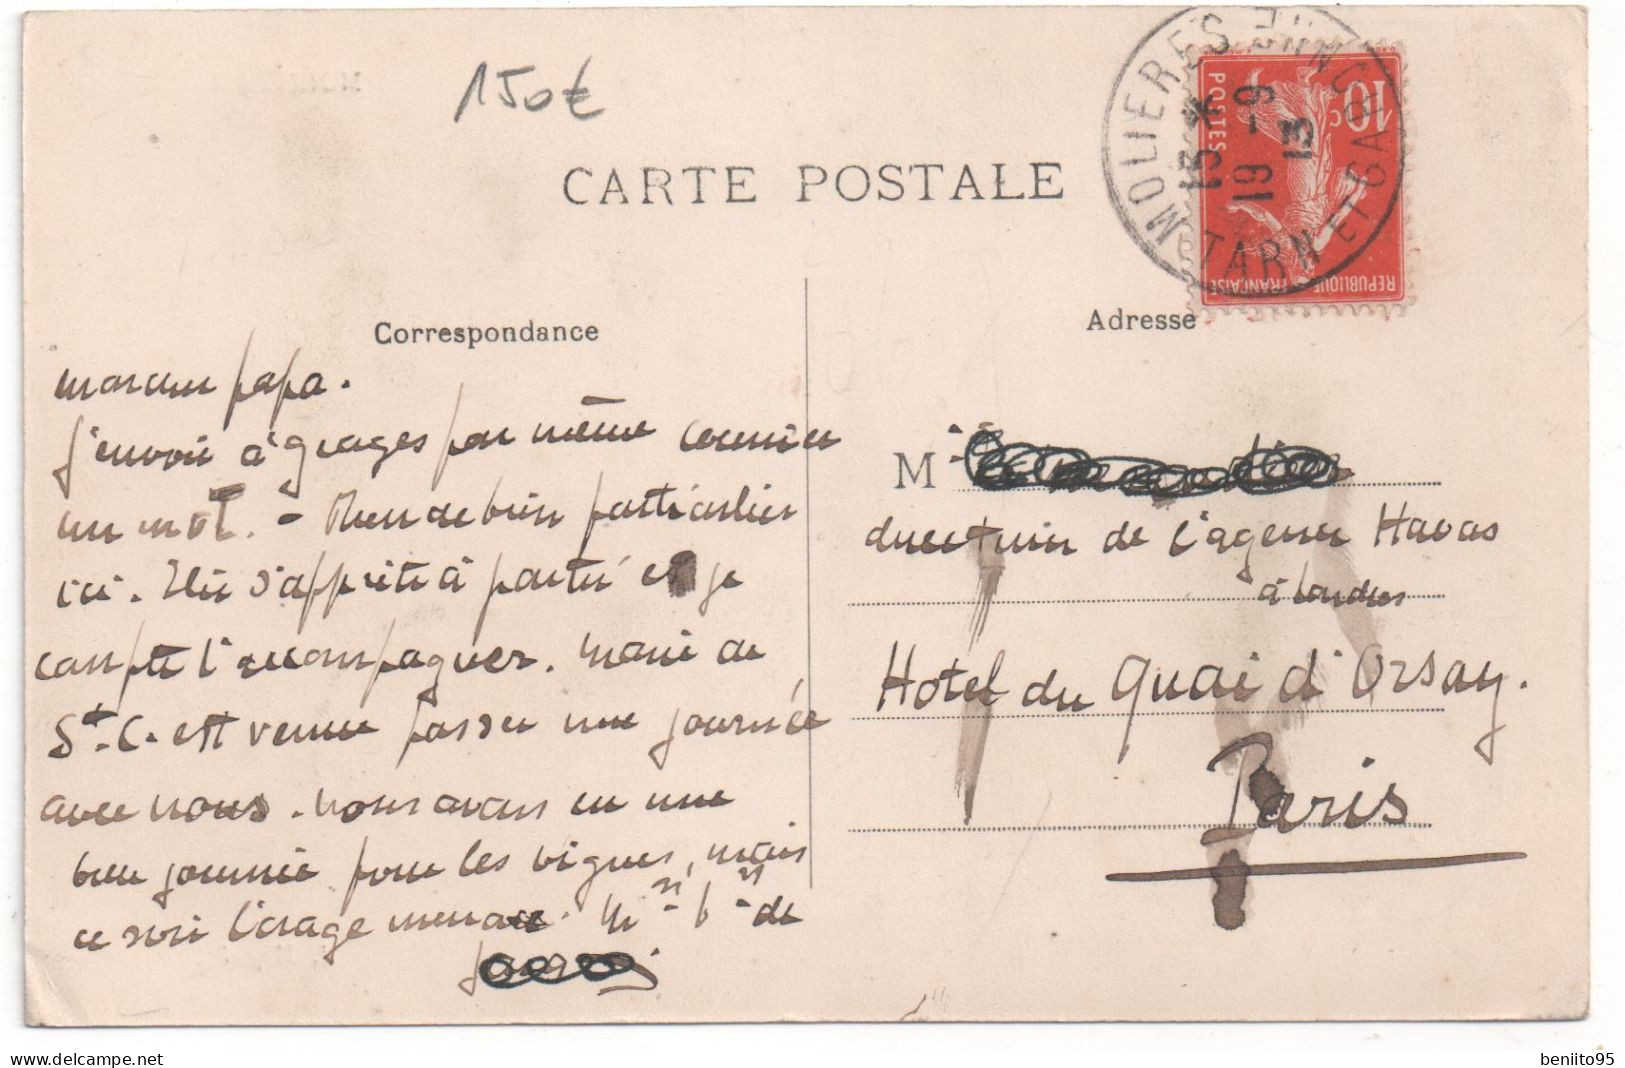 150€
CARTE POSTALE
MOLIERES
TARN ET GAR
15 *
19 - 9
13
10c
POSTES
REPUBLIQUE FRANÇAISE
Correspondance
mon cher papa.
J'envoie à grages par même courrier
un mot. - Rien de bien particulier
ici. s'apprête à partir et je
compte l'accompagner. Marie de
St. C. est venue passer une journée
avec nous. Nous avons eu une
belle journée pour les vignes, mais
ce soir l'orage menace. de
Adresse
M
directeur de l'agence Havas
à Londres
Hotel du Quai d'Orsay.
Paris
beniito95